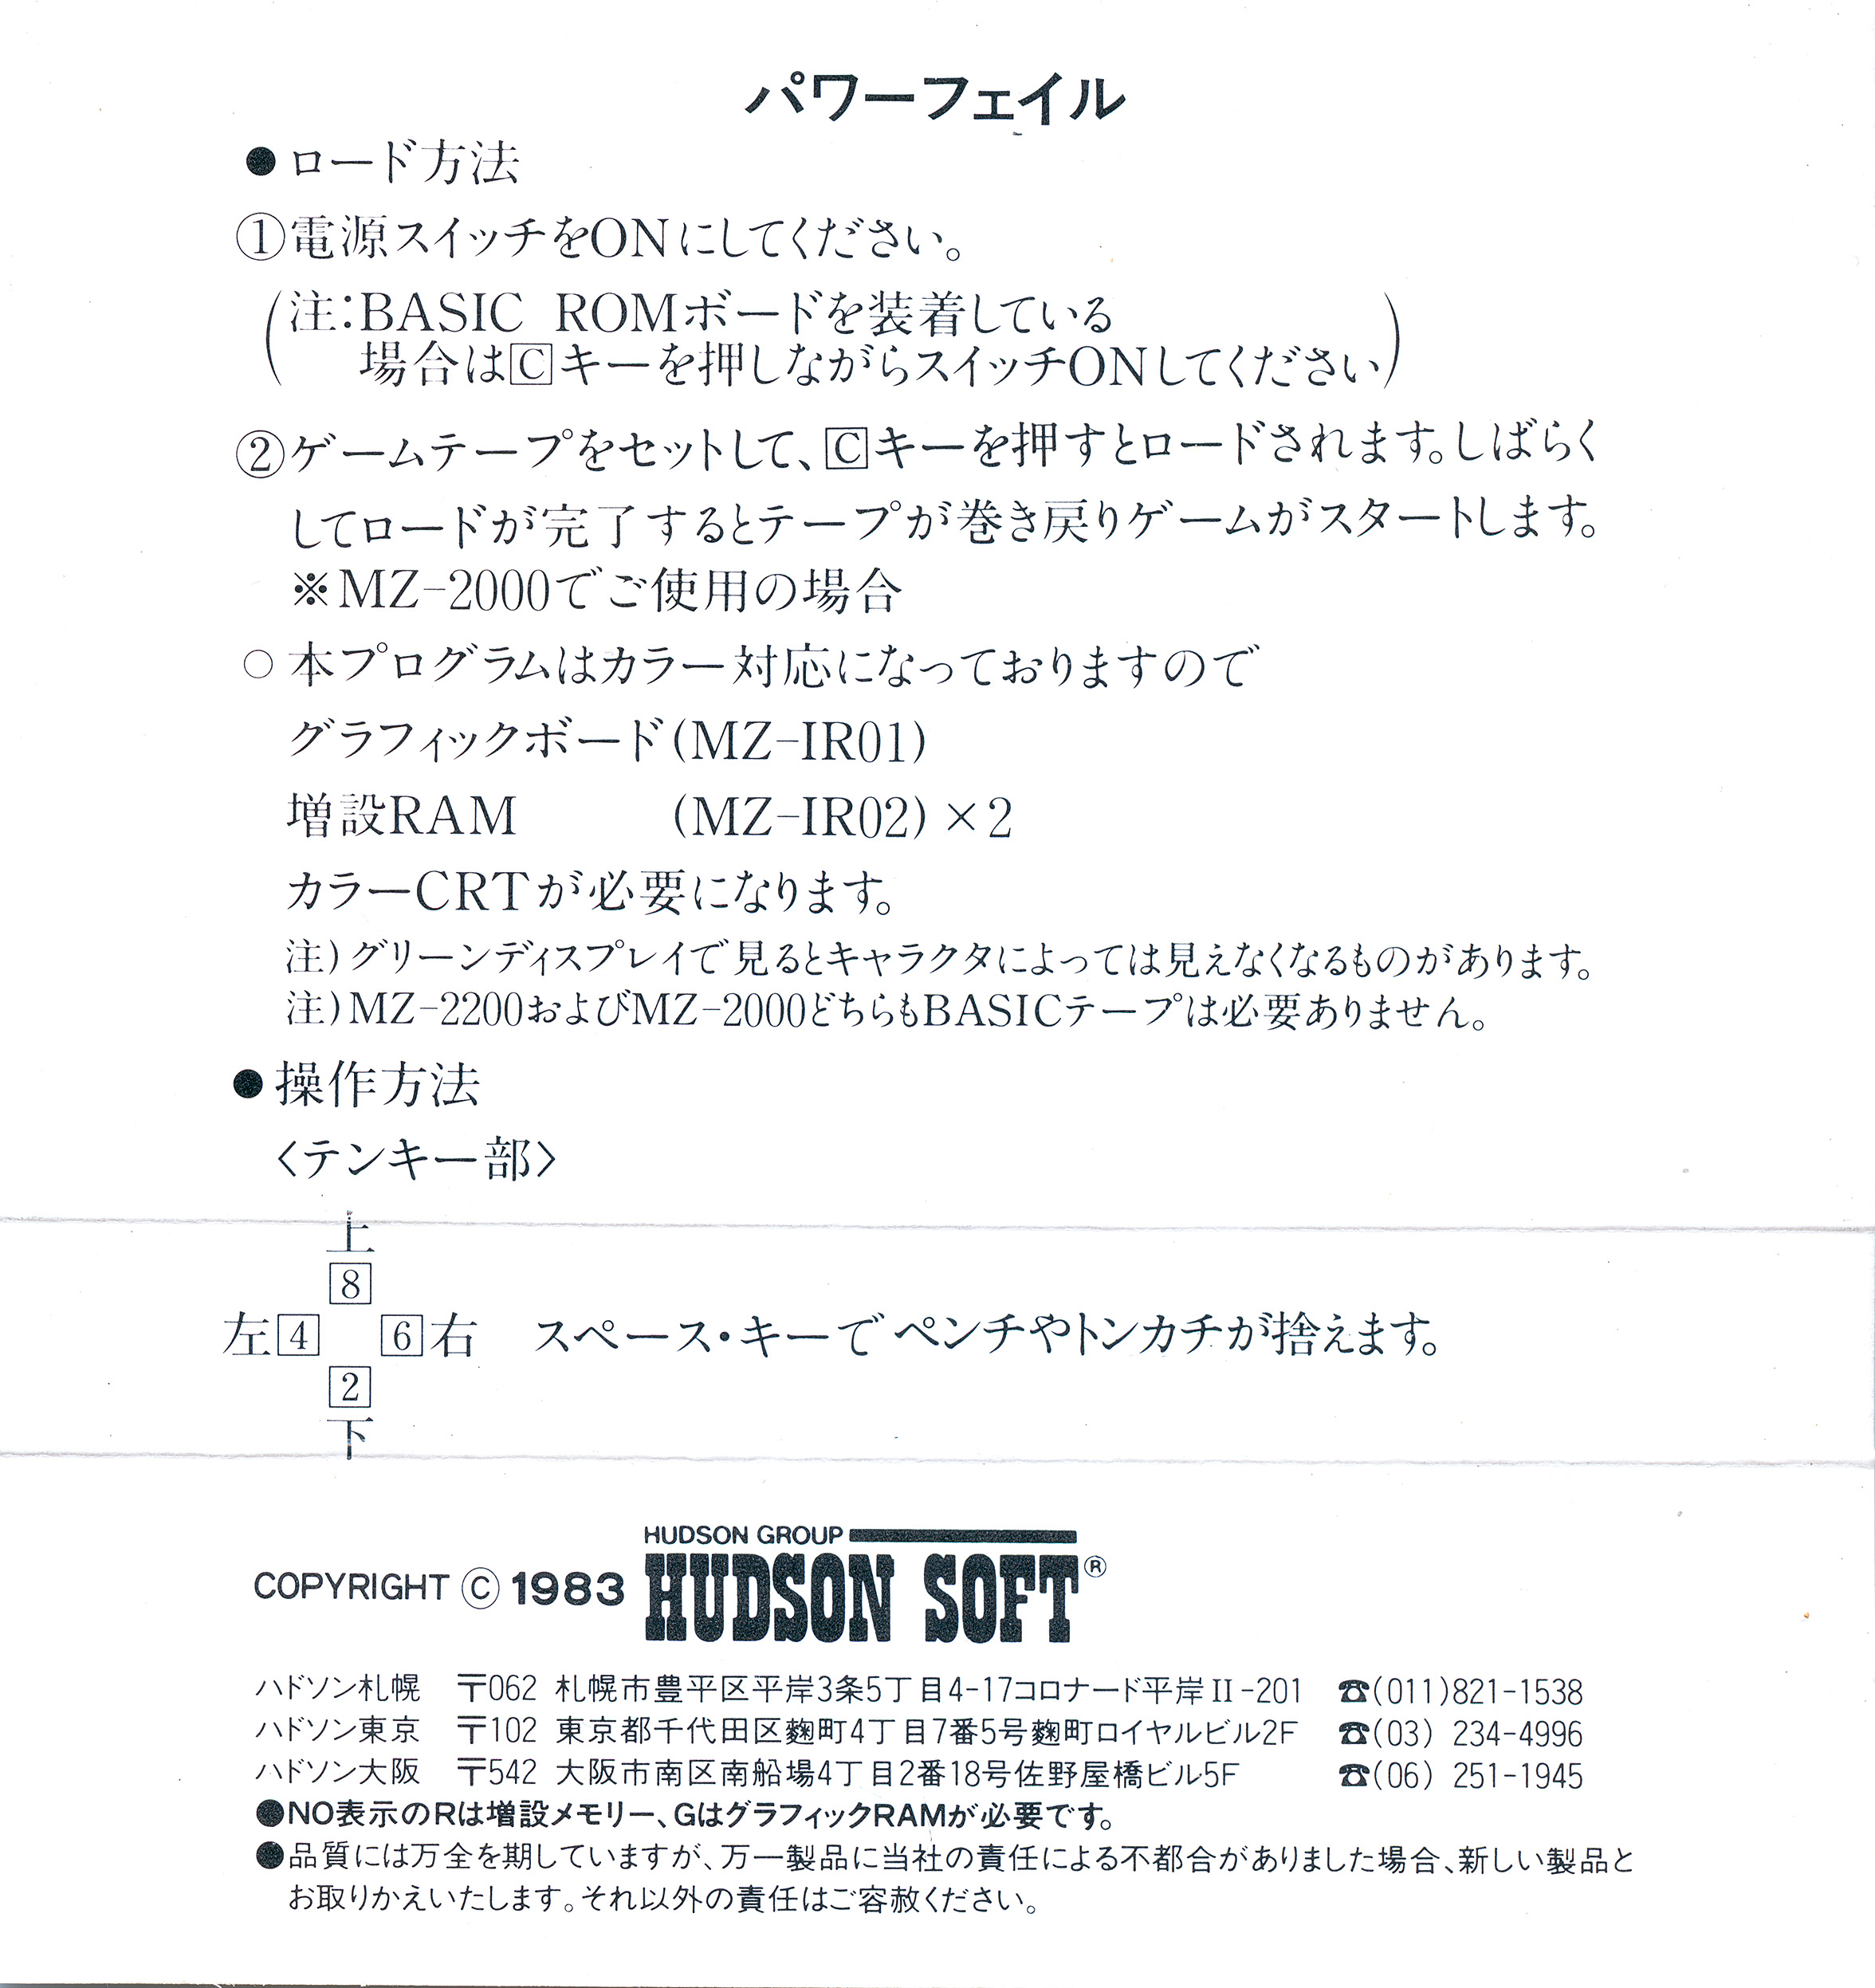 パワーフェイル
●ロード方法
①電源スイッチをONにしてください。
(注:BASIC ROMボードを装着している
場合は[C]キーを押しながらスイッチONしてください)
②ゲームテープをセットして、[C]キーを押すとロードされます。しばらく
してロードが完了するとテープが巻き戻りゲームがスタートします。
※MZ-2000でご使用の場合
○本プログラムはカラー対応になっておりますので
グラフィックボード(MZ-IR01)
増設RAM (MZ-IR02)×2
カラーCRTが必要になります。
注)グリーンディスプレイで見るとキャラクタによっては見えなくなるものがあります。
注)MZ-2200およびMZ-2000どちらもBASICテープは必要ありません。
●操作方法
〈テンキー部〉
上
8
左4 6右 スペース・キーでペンチやトンカチが捨えます。
2
下
HUDSON GROUP
COPYRIGHT Ⓒ 1983 HUDSON SOFT®
ハドソン札幌 〒062 札幌市豊平区平岸3条5丁目4-17コロナード平岸II-201 ☎(011)821-1538
ハドソン東京 〒102 東京都千代田区麹町4丁目7番5号麹町ロイヤルビル2F ☎(03) 234-4996
ハドソン大阪 〒542 大阪市南区南船場4丁目2番18号佐野屋橋ビル5F ☎(06) 251-1945
●NO表示のRは増設メモリー、GはグラフィックRAMが必要です。
●品質には万全を期していますが、万一製品に当社の責任による不都合がありました場合、新しい製品と
お取りかえいたします。それ以外の責任はご容赦ください。